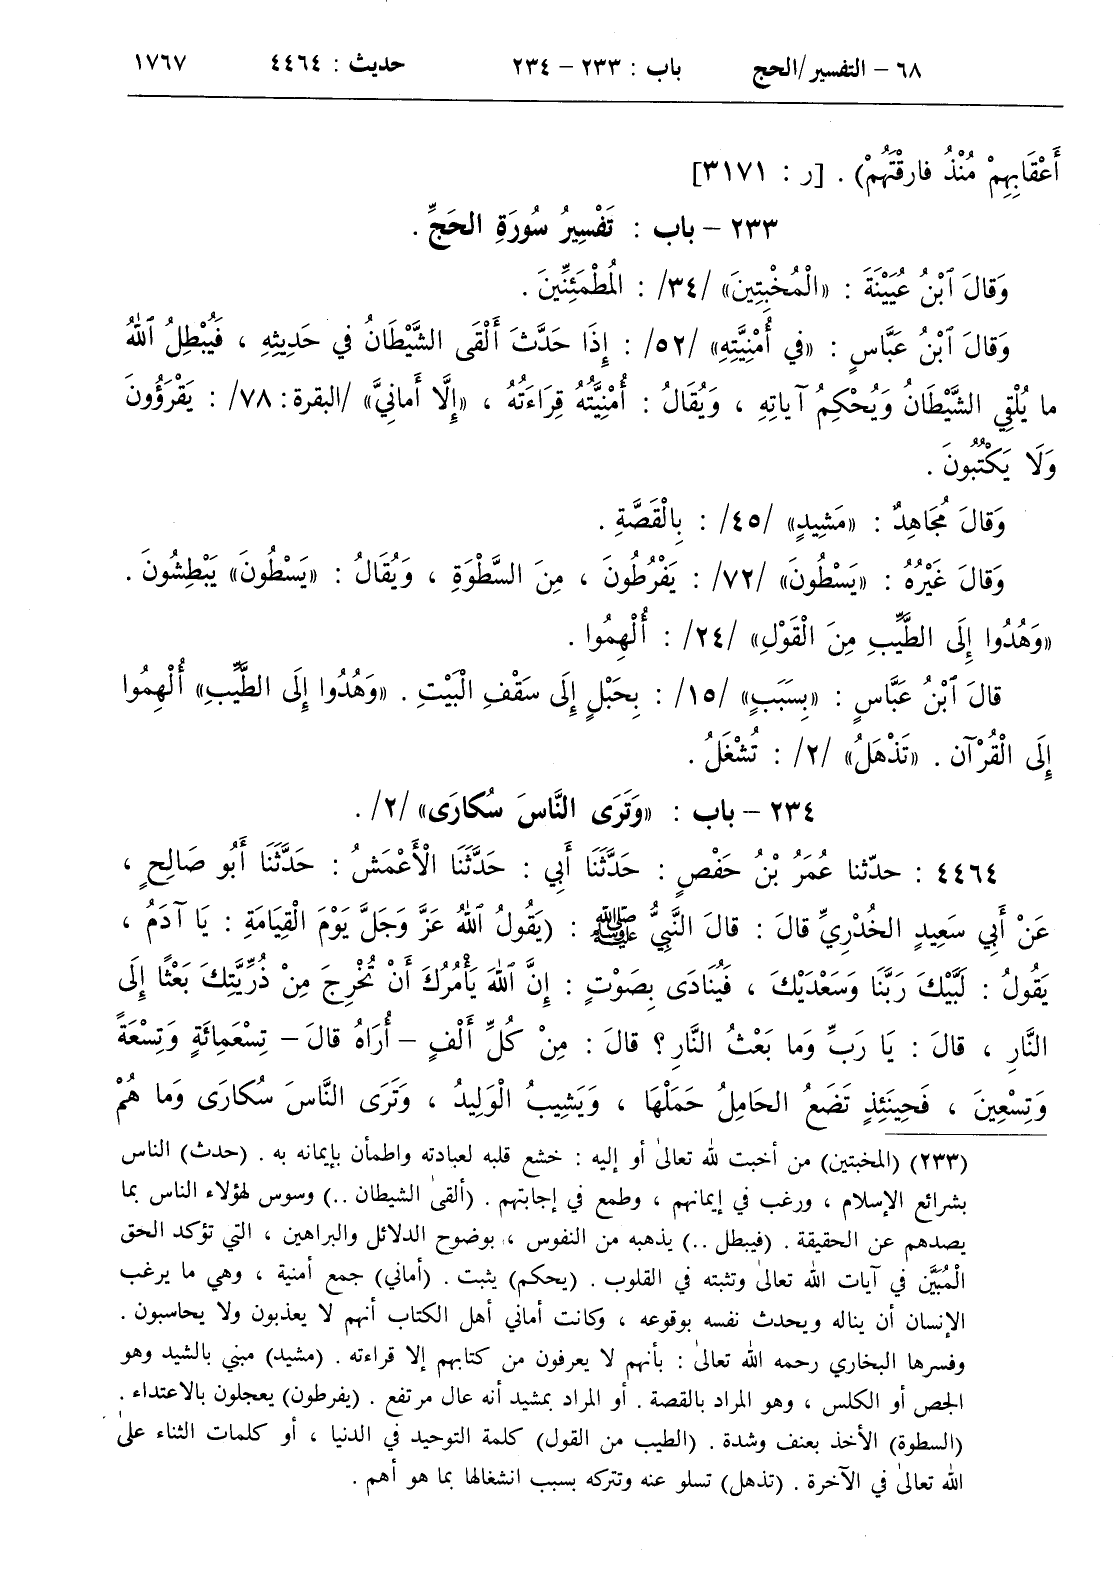 ٦٨ – التفسير/الحج باب : ٢٣٣ – ٢٣٤ حديث : ٤٤٦٤ ١٧٦٧
أَعْقَابِهِمْ مُنْذُ فارَقْتَهُمْ) . [ر : ٣١٧١]
٢٣٣ – باب : تَفْسِيرُ سُورَةِ الحَجِّ .
وَقالَ ٱبْنُ عُيَيْنَةَ : «الْمُخْبِتِينَ» /٣٤/ : الْمُطْمَئِنِّينَ .
وَقالَ ٱبْنُ عَبَّاسٍ : «في أُمْنِيَّتِهِ» /٥٢/ : إِذَا حَدَّثَ أَلْقَى الشَّيْطَانُ في حَدِيثِهِ ، فَيُبْطِلُ ٱللهُ
ما يُلْقِي الشَّيْطَانُ وَيُحْكِمُ آيَاتِهِ ، وَيُقَالُ : أُمْنِيَّتُهُ قِرَاءَتُهُ ، «إِلَّا أَمانِيَّ» /البقرة: ٧٨/ : يَقْرَؤُونَ
وَلَا يَكْتُبُونَ .
وَقالَ مُجَاهِدٌ : «مَشِيدٍ» /٤٥/ : بِالْقَصَّةِ .
وَقالَ غَيْرُهُ : «يَسْطُونَ» /٧٢/ : يَفْرُطُونَ ، مِنَ السَّطْوَةِ ، وَيُقَالُ : «يَسْطُونَ» يَبْطِشُونَ .
«وَهُدُوا إِلَى الطَّيِّبِ مِنَ الْقَوْلِ» /٢٤/ : أُلْهِمُوا .
قالَ ٱبْنُ عَبَّاسٍ : «بِسَبَبٍ» /١٥/ : بِحَبْلٍ إِلَى سَقْفِ الْبَيْتِ . «وَهُدُوا إِلَى الطَّيِّبِ» أُلْهِمُوا
إِلَى الْقُرْآنِ . «تَذْهَلُ» /٢/ : تُشْغَلُ .
٢٣٤ – باب : «وَتَرَى النَّاسَ سُكارَى» /٢/ .
٤٤٦٤ : حدّثنا عُمَرُ بْنُ حَفْصٍ : حَدَّثَنَا أَبي : حَدَّثَنَا الْأَعْمَشُ : حَدَّثَنَا أَبُو صَالِحٍ ،
عَنْ أَبي سَعِيدٍ الخُدْرِيِّ قالَ : قالَ النَّبِيُّ ﷺ : (يَقُولُ ٱللهُ عَزَّ وَجَلَّ يَوْمَ الْقِيَامَةِ : يَا آدَمُ ،
يَقُولُ : لَبَّيْكَ رَبَّنَا وَسَعْدَيْكَ ، فَيُنَادَى بِصَوْتٍ : إِنَّ ٱللهَ يَأْمُرُكَ أَنْ تُخْرِجَ مِنْ ذُرِّيَّتِكَ بَعْثًا إِلَى
النَّارِ ، قالَ : يَا رَبِّ وَما بَعْثُ النَّارِ؟ قالَ : مِنْ كُلِّ أَلْفٍ – أُرَاهُ قالَ – تِسْعَمِائَةٍ وَتِسْعَةً
وَتِسْعِينَ ، فَحِينَئِذٍ تَضَعُ الحَامِلُ حَمْلَهَا ، وَيَشِيبُ الْوَلِيدُ ، وَتَرَى النَّاسَ سُكارَى وَما هُمْ
(٢٣٣) (المخبتين) من أخبت لله تعالىٰ أو إليه : خشع قلبه لعبادته واطمأن بإيمانه به . (حدث) الناس
بشرائع الإسلام ، ورغب في إيمانهم ، وطمع في إجابتهم . (ألقىٰ الشيطان ..) وسوس لهؤلاء الناس بما
يصدهم عن الحقيقة . (فيبطل ..) يذهبه من النفوس ، بوضوح الدلائل والبراهين ، التي تؤكد الحق
الْمُبَيَّن في آيات الله تعالىٰ وتثبته في القلوب . (يحكم) يثبت . (أماني) جمع أمنية ، وهي ما يرغب
الإنسان أن يناله ويحدث نفسه بوقوعه ، وكانت أماني أهل الكتاب أنهم لا يعذبون ولا يحاسبون .
وفسرها البخاري رحمه الله تعالىٰ : بأنهم لا يعرفون من كتابهم إلا قراءته . (مشيد) مبني بالشيد وهو
الجص أو الكلس ، وهو المراد بالقصة . أو المراد بمشيد أنه عال مرتفع . (يفرطون) يعجلون بالاعتداء .
(السطوة) الأخذ بعنف وشدة . (الطيب من القول) كلمة التوحيد في الدنيا ، أو كلمات الثناء علىٰ
الله تعالىٰ في الآخرة . (تذهل) تسلو عنه وتتركه بسبب انشغالها بما هو أهم .